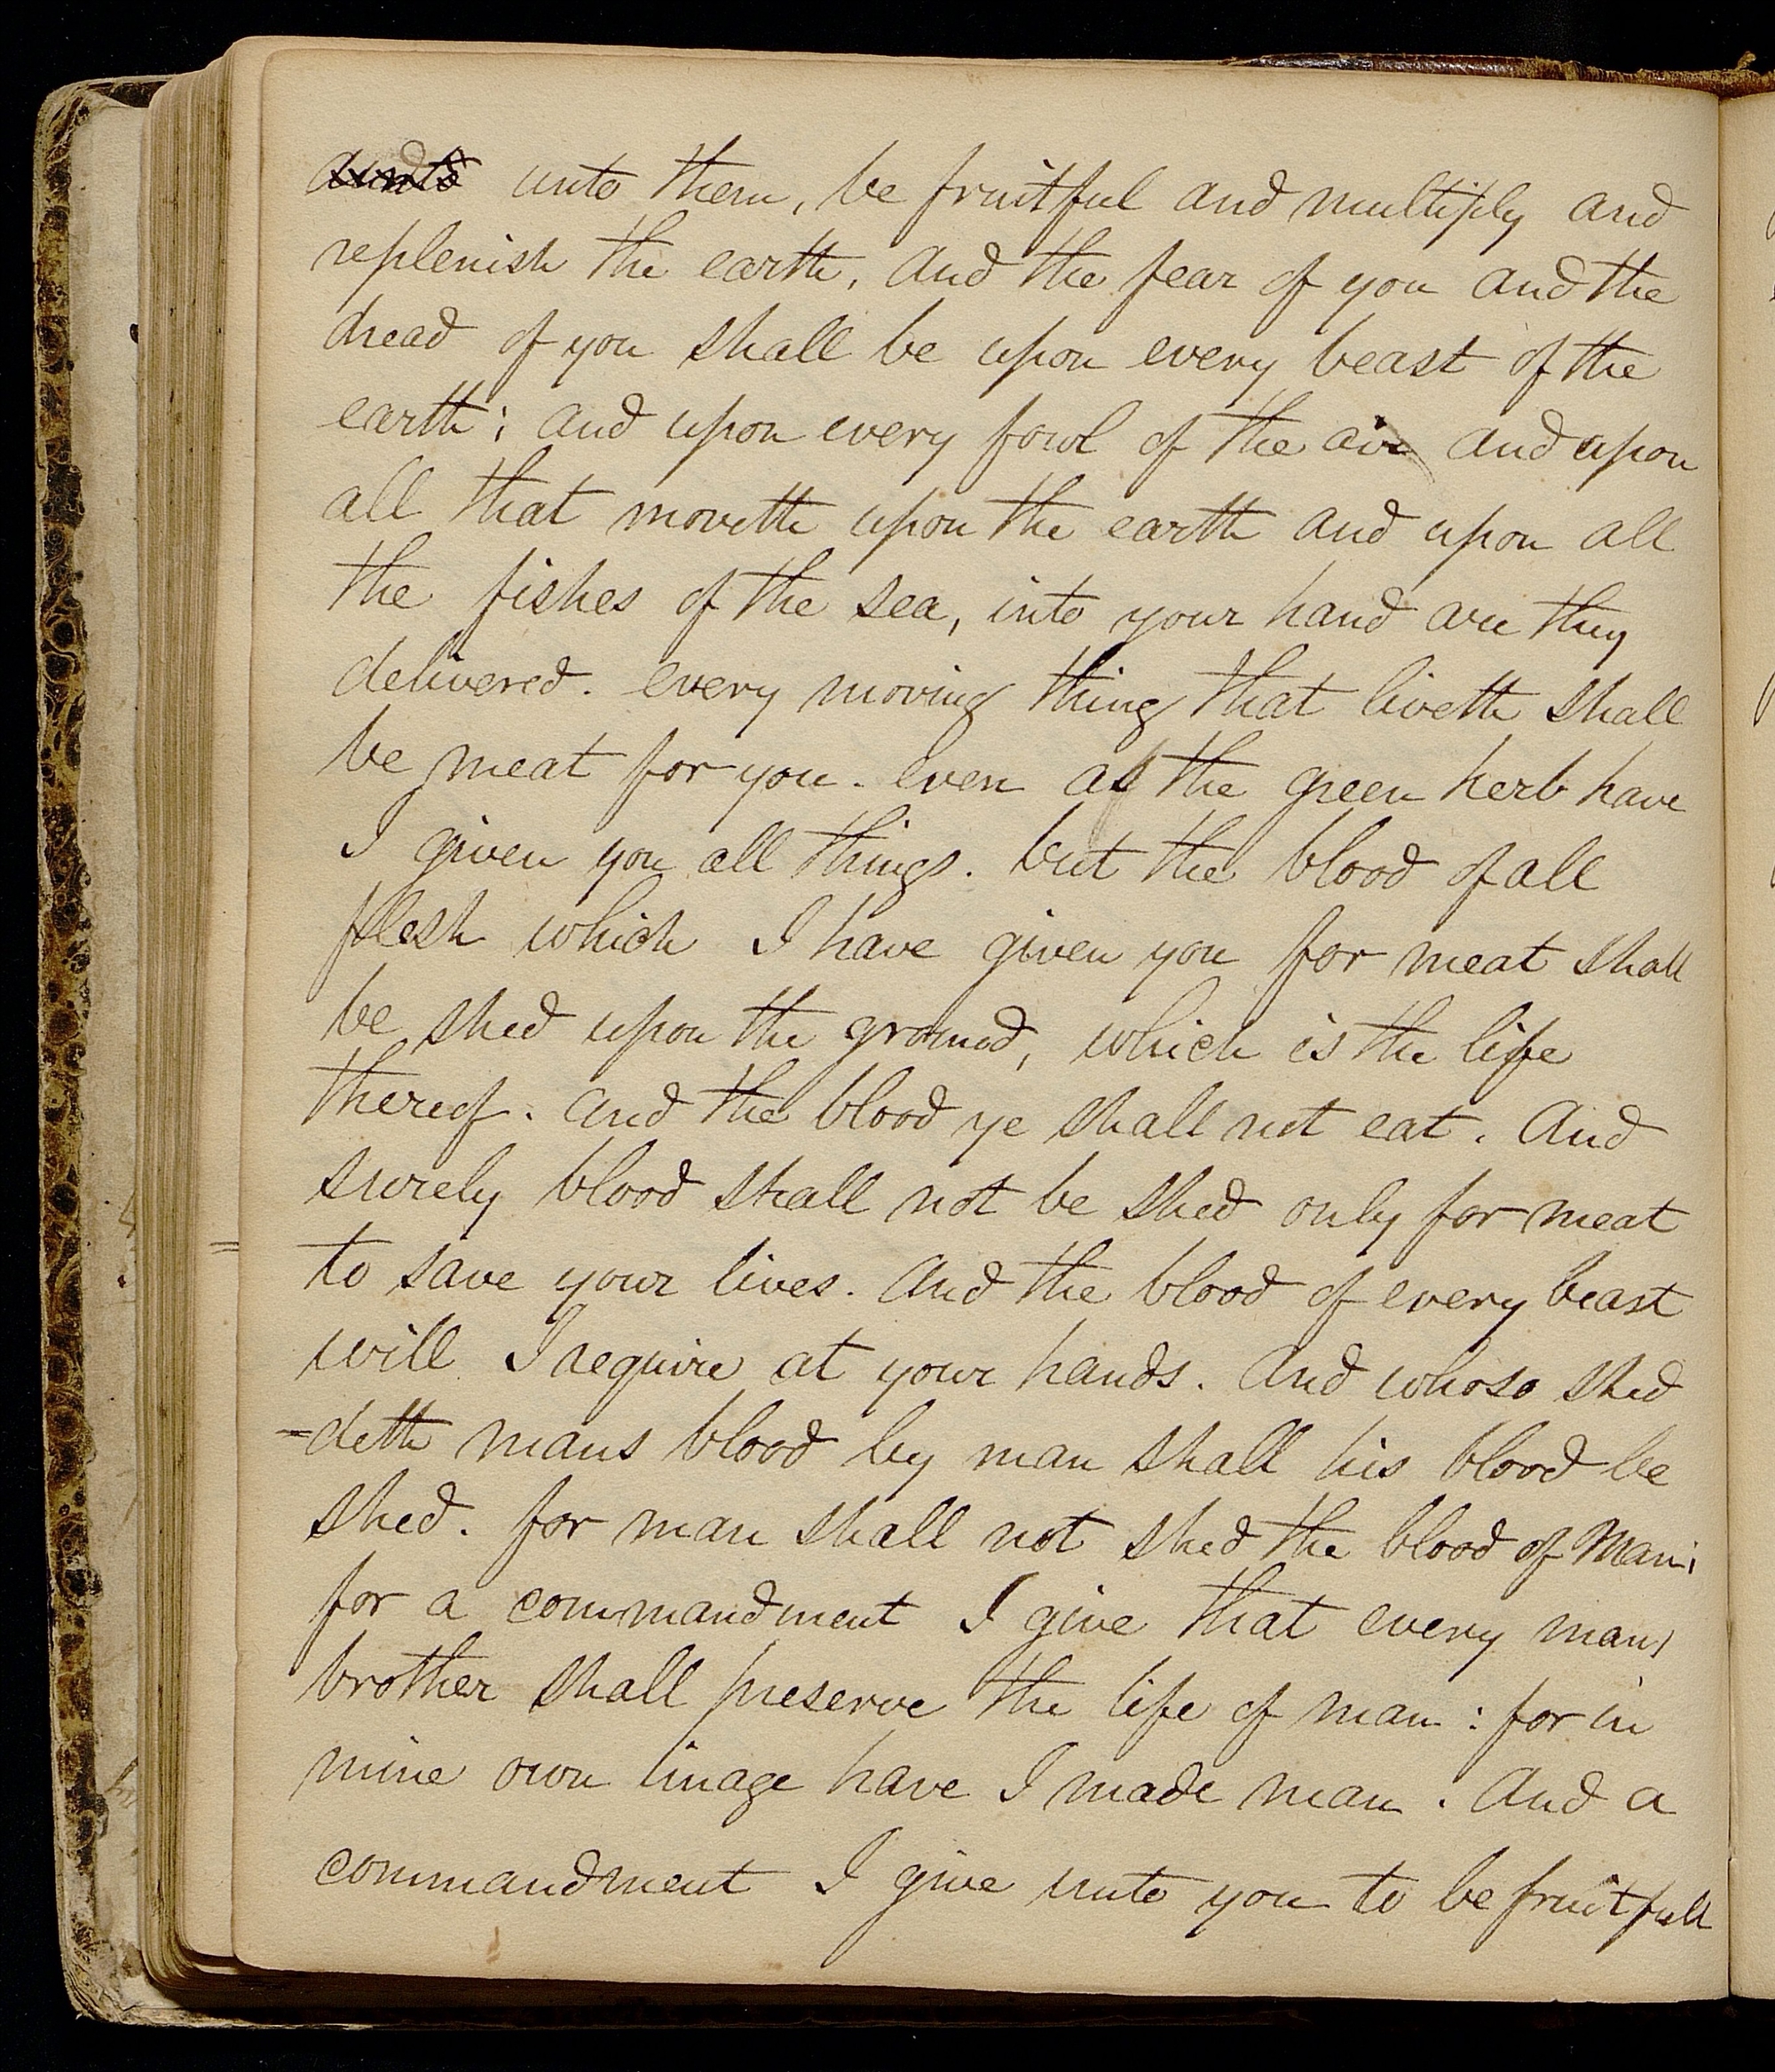 unto them, be fruitful and multiply and
replenish the earth, and the fear of you and the
dread of you shall be upon every beast of the
earth; and upon every fowl of the air and upon
all that moveth upon the earth and upon all
the fishes of the sea, into your hand are they
delivered. every moving thing that liveth shall
be meat for you. even as the green herb have
I given you all things. but the blood of all
flesh which I have given you for meat shall
be shed upon the ground, which is the life
thereof. and the blood ye shall not eat. And
surely blood shall not be shed only for meat
to save your lives. And the blood of every beast
will I require at your hands. And whoso shed
=deth mans blood by man shall his blood be
shed. for man shall not shed the blood of Man;
for a commandment I give that every mans
brother shall preserve the life of man: for in
mine own image have I made man. And a
commandment I give unto you to be fruitfull